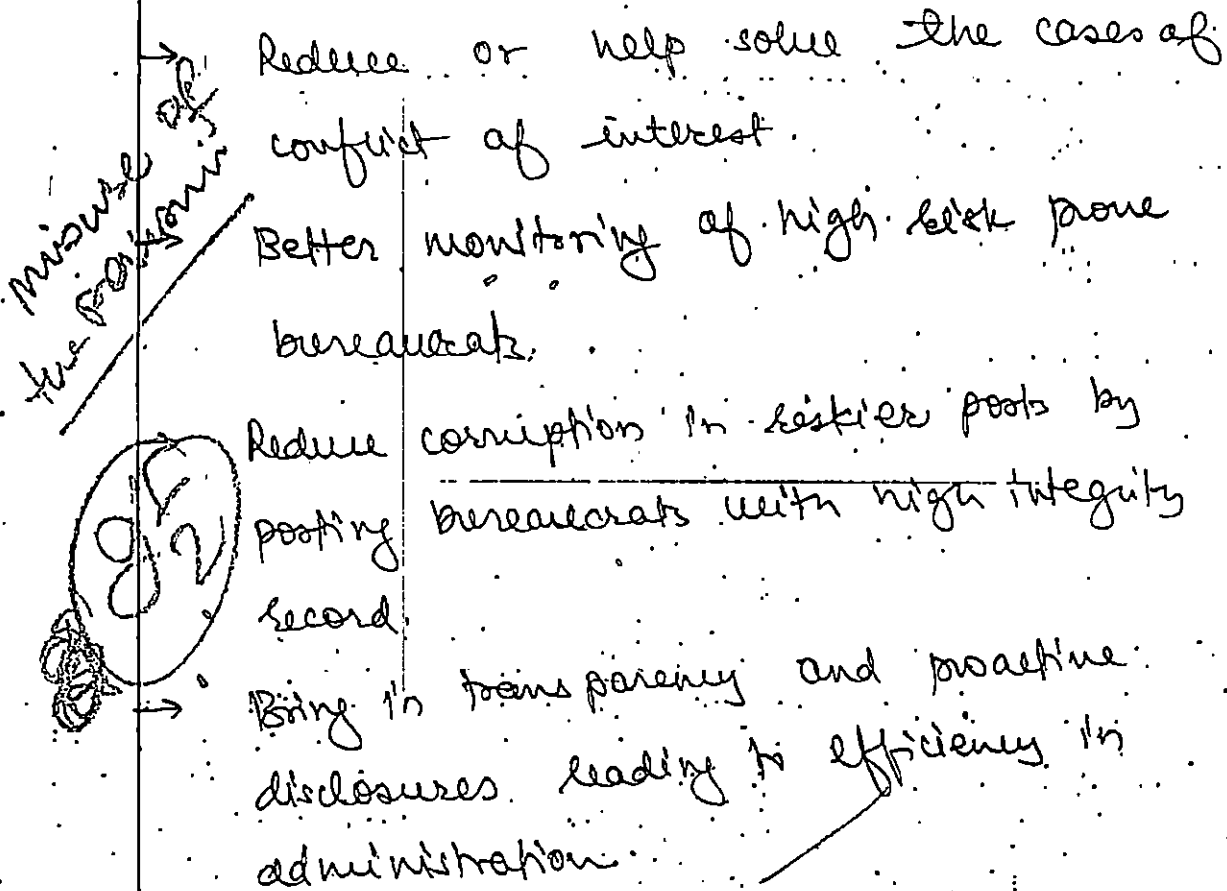 → Reduce or help solve the cases of
conflict of interest.
misuse of
the
→ Better monitoring of high risk prone
bureaucrats.
→ Reduce corruption in riskier posts by
posting bureaucrats with high integrity
record.
→ Bring in transparency and proactive
disclosures leading to efficiency in
administration.